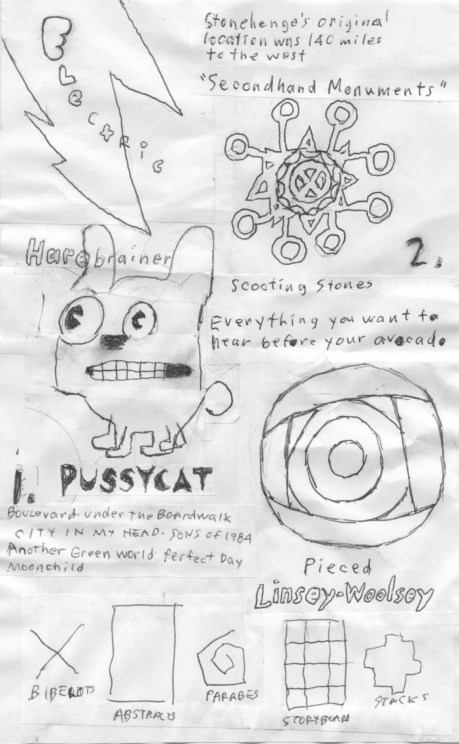 Electric
Stonehenge's original
location was 140 miles
to the west
"Secondhand Monuments"
2.
Harebrainer
Scooting Stones
Everything you want to
hear before your avocado
1. PUSSYCAT
Boulevard. under the Boardwalk
CITY IN MY HEAD. SONS OF 1984
Another Green World Perfect Day
Moonchild
Pieced
Linsey-Woolsey
ABSTRACTS
STORYBOARD
STACKS